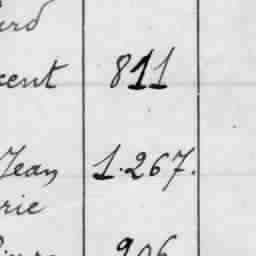 cent 811
Jean 1.267.
rie
906